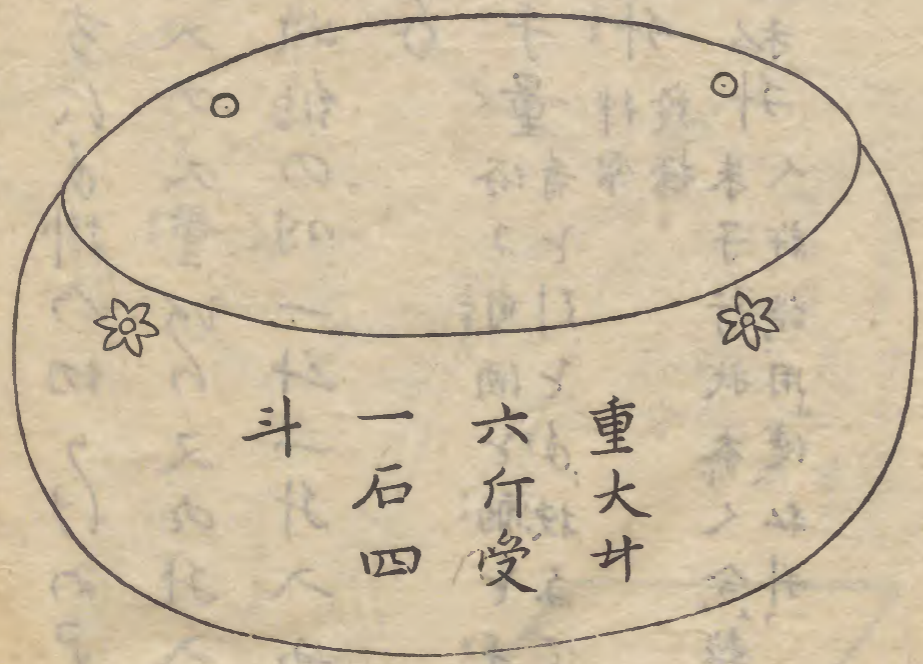 重大廾
六斤受
一石四
斗